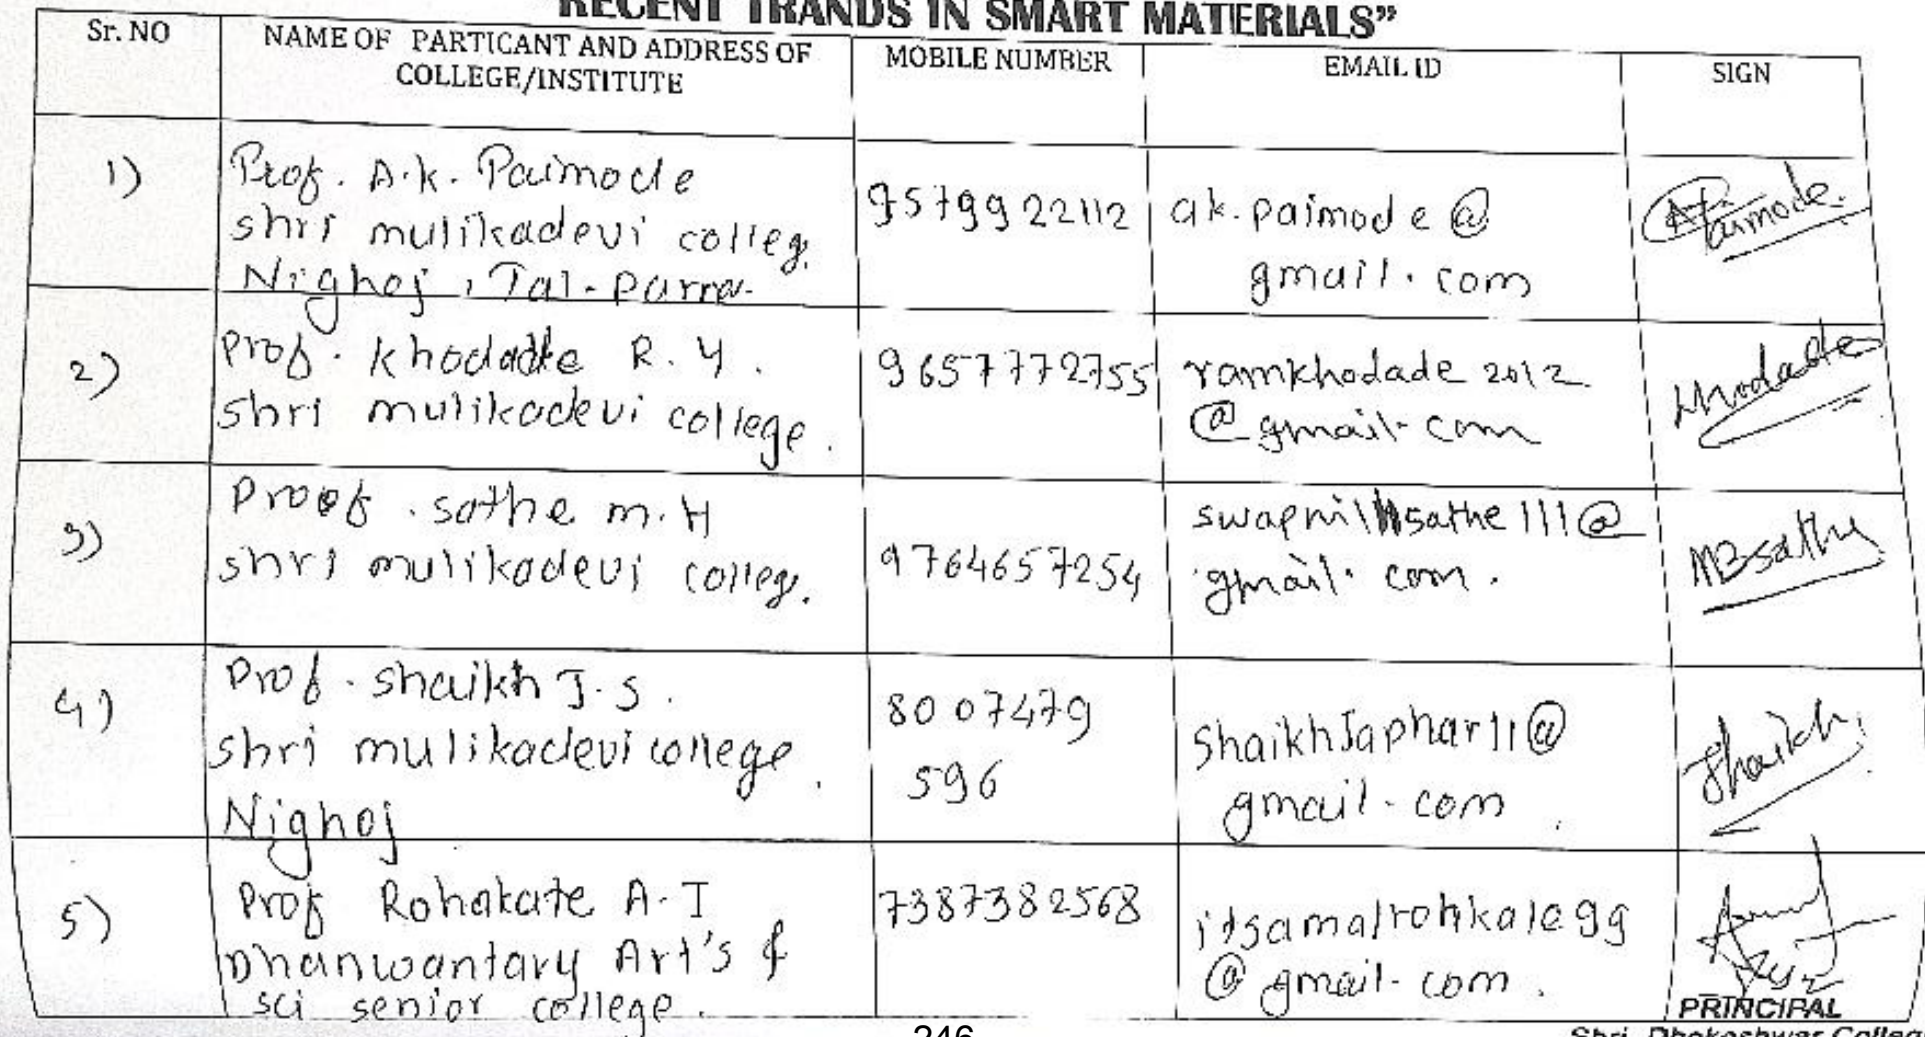 "RECENT TRANDS IN SMART MATERIALS"
Sr. NO
NAME OF PARTICANT AND ADDRESS OF
COLLEGE/INSTITUTE
MOBILE NUMBER
EMAIL ID
SIGN
1)
Prof. A.k. Paimode
shri mulikadevi colleg.
Nighoj , Tal- parna-
9579922112
ak.paimode@
gmail.com
Paimode.
2)
Prof. Khodade R.Y.
shri mulikadevi college.
9657772755
ramkhodade2012
@gmail.com
Khodade
3)
Proof. sathe m.H
shri mulikadevi colleg.
9764657254
sathe111@
gmail.com.
MBsathe
4)
Prof. shaikh J.S.
shri mulikadevi college.
Nighoj
8007479
596
ShaikhJaphar11@
gmail.com.
Shaikh
5)
Prof Rohakate A.J
Dhanwantary Art's &
sci senior college.
7387382568
@gmail.com.
PRINCIPAL
246
Shri. Dhokeshwar College